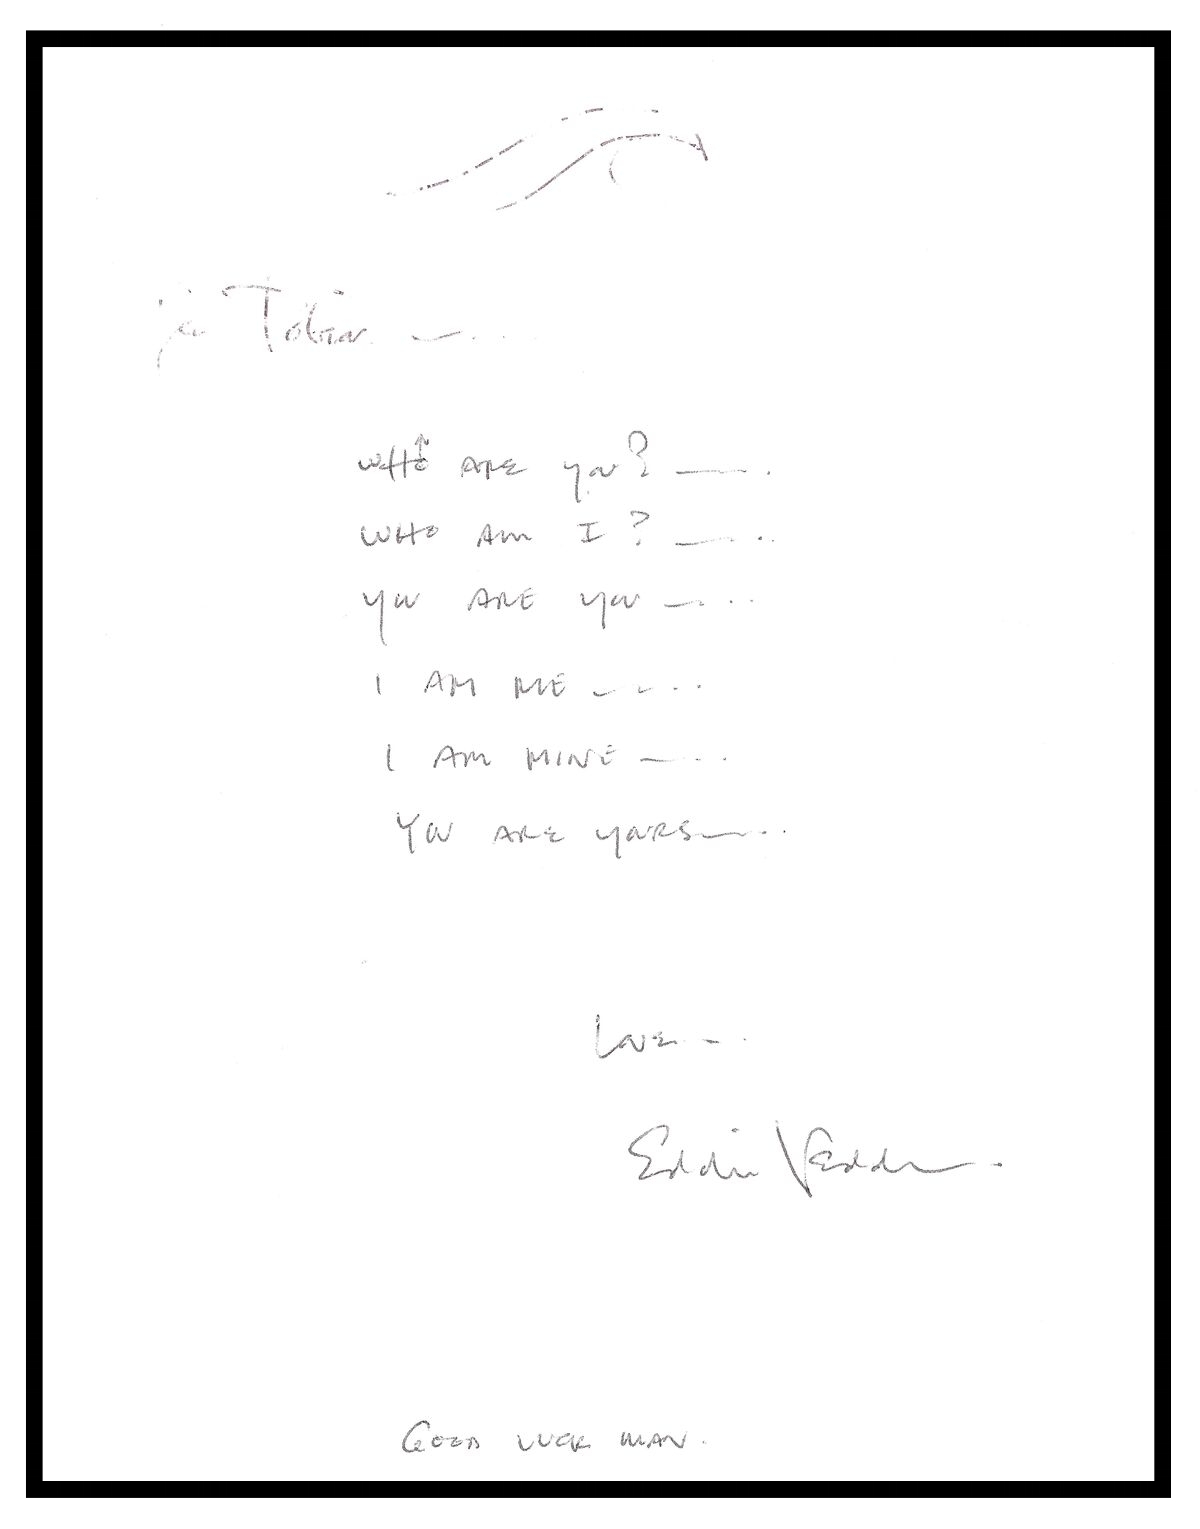 Tobin — ....
WHO ARE YOU? — .
WHO AM I? — ..
YOU ARE YOU — ...
I AM ME — ....
I AM MINE — ....
YOU ARE YOURS — ...
LOVE — .
Eddie Vedder.
GOOD LUCK MAN.